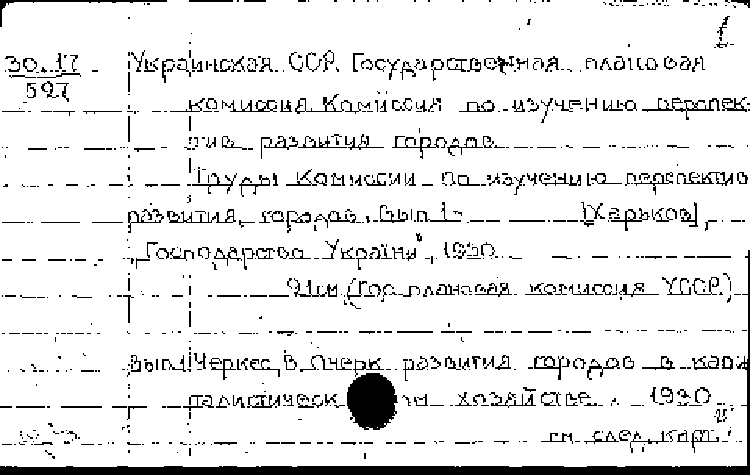 1
30.17 Украинская ССР. Государственная плановая
527
комиссия. Комиссия по изучению перспек-
тив развития городов.
Труды Комиссии по изучению перспектив
развития городов. Вып. 1- [Харьков],
"Господарство Україны", 1930
21см. (Гос. плановая комиссия УССР.)
Вып.1 Черкес, В. Очерк развития городов в капи
талистическ ом хозяйстве. 1930
см. след. карт.